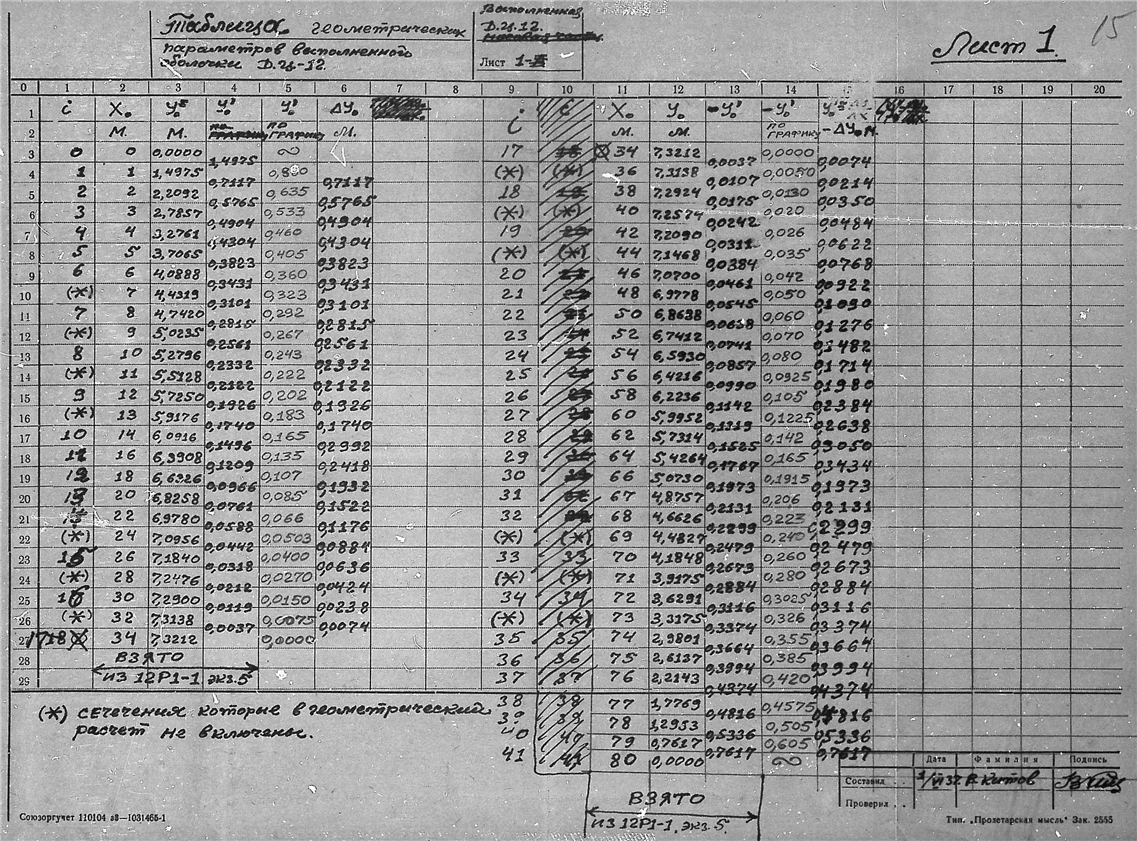 15
Таблица геометрических
параметров выполненного
оболочки D.ц-12.
Выполненная
D.ц.12.
Лист 1-
Лист 1
0 1 2 3 4 5 6 7 8 9 10 11 12 13 14 15 16 17 18 19 20
1 i X₀ y₀ y₀' y₀' Δy₀ i i X₀ y₀ -y₀' -y₀' y₀
2 м. м. по графику по графику м. м. м. по графику -Δy₀ м.
3 0 0 0,0000 ∞ 17 18 34 7,3212 0,0000
1,4975 0,0037 0,0074
4 1 1 1,4975 0,880 (*) (*) 36 7,3138 0,0050
0,7117 0,7117 0,0107 0,0214
5 2 2 2,2092 0,635 18 19 38 7,2924 0,0130
0,5765 0,5765 0,0175 0,0350
6 3 3 2,7857 0,533 (*) (*) 40 7,2574 0,020
0,4904 0,4904 0,0242 0,0484
7 4 4 3,2761 0,460 19 20 42 7,2090 0,026
0,4304 0,4304 0,0311 0,0622
8 5 5 3,7065 0,405 (*) (*) 44 7,1468 0,035
0,3823 0,3823 0,0384 0,0768
9 6 6 4,0888 0,360 20 46 7,0700 0,042
0,3431 0,3431 0,0461 0,0922
10 (*) 7 4,4319 0,323 21 48 6,9778 0,050
0,3101 0,3101 0,0545 0,1090
11 7 8 4,7420 0,292 22 50 6,8638 0,060
0,2815 0,2815 0,0638 0,1276
12 (*) 9 5,0235 0,267 23 52 6,7412 0,070
0,2561 0,2561 0,0741 0,1482
13 8 10 5,2796 0,243 24 54 6,5930 0,080
0,2332 0,2332 0,0857 0,1714
14 (*) 11 5,5128 0,222 25 56 6,4216 0,0925
0,2122 0,2122 0,0990 0,1980
15 9 12 5,7250 0,202 26 58 6,2236 0,105
0,1926 0,1926 0,1142 0,2384
16 (*) 13 5,9176 0,183 27 60 5,9952 0,1225
0,1740 0,1740 0,1319 0,2638
17 10 14 6,0916 0,165 28 62 5,7314 0,142
0,1496 0,2992 0,1525 0,3050
18 11 16 6,3908 0,135 29 64 5,4264 0,165
0,1209 0,2418 0,1767 0,3434
19 12 18 6,6326 0,107 30 66 5,0730 0,1915
0,0966 0,1932 0,1973 0,1973
20 13 20 6,8258 0,085 31 67 4,8757 0,206
0,0761 0,1522 0,2131 0,2131
21 22 6,9780 0,066 32 68 4,6626 0,223
0,0588 0,1176 0,2299 0,2299
22 (*) 24 7,0956 0,0503 (*) (*) 69 4,4327 0,240
0,0442 0,0884 0,2479 0,2479
23 15 26 7,1840 0,0400 33 33 70 4,1848 0,260
0,0318 0,0636 0,2673 0,2673
24 (*) 28 7,2476 0,0270 (*) (*) 71 3,9175 0,280
0,0212 0,0424 0,2884 0,2884
25 16 30 7,2900 0,0150 34 34 72 3,6291 0,3025
0,0119 0,0238 0,3116 0,3116
26 (*) 32 7,3138 0,0075 (*) (*) 73 3,3175 0,326
0,0037 0,0074 0,3374 0,3374
27 17 18 34 7,3212 0,0000 35 35 74 2,9801 0,355
0,3664 0,3664
28 взято 36 36 75 2,6137 0,385
0,3994 0,3994
29 из 12Р1-1 экз.5 37 37 76 2,2143 0,420
0,4374 0,4374
38 38 77 1,7769 0,4575
0,4816 0,4816
39 39 78 1,2953 0,505
0,5336 0,5336
40 40 79 0,7617 0,605
0,7617 0,7617
41 41 80 0,0000 ∞
(*) сечечения которые в геометрический
расчет не включены.
взято
из 12Р1-1. экз.5.
Дата Фамилия Подпись
Составил 1/VI 37. В. Китов
Проверил
Союзоргучет 110104 зв—1031465-1
Тип. „Пролетарская мысль" Зак. 2555